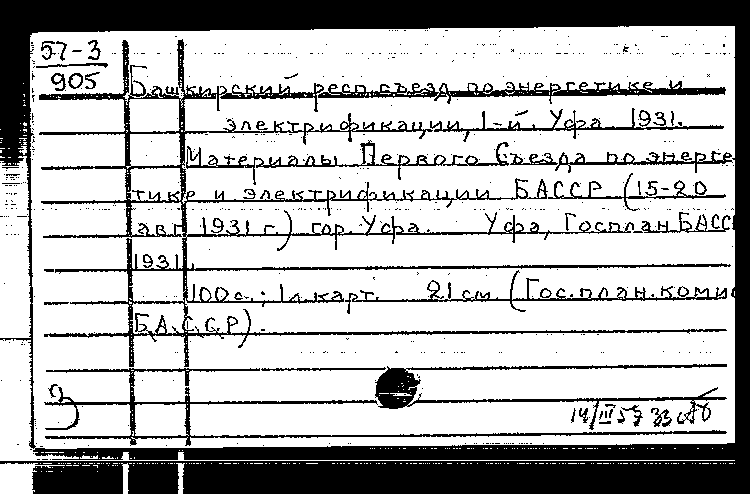 57-3
905
Башкирский респ. съезд по энергетике и
электрификации, 1-й. Уфа 1931.
Материалы Первого Съезда по энерге
тике и электрификации БАССР (15-20
авг. 1931 г.) гор. Уфа. Уфа, Госплан БАСС
1931.
100 с.; 1 л. карт. 21 см. (Гос. план. коми
Б.А.С.С.Р).
З
14/III 57